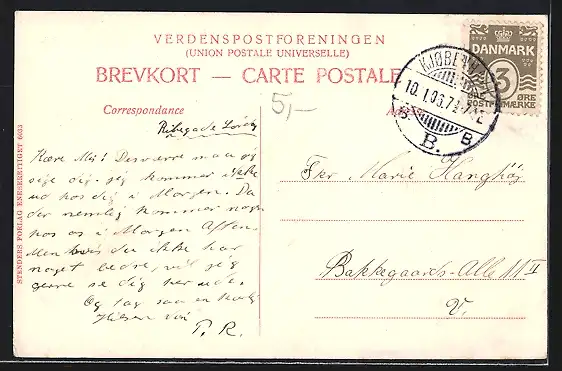 VERDENSPOSTFORENINGEN
(UNION POSTALE UNIVERSELLE)
BREVKORT — CARTE POSTALE
DANMARK
3
ØRE
POSTFRIMÆRKE
KJØBENH
10.1.06.7
B. B
B.
Correspondance
5,-
Ribegade Lørdag
Kære Mis! Desværre maa jeg
sige dig jeg kommer ikke
ud hos dig i Morgen. Da
der nemlig kommer nogen
hos os i Morgen Aften.
Men hvis du ikke har
noget bedre, vil jeg
gerne se dig her ude.
Og tag saa en
Hilsen din
P. R.
Frk. Marie Hanghøj
Bakkegaards-Alle 11 II
V.
STENDERS FORLAG ENEBERETTIGET 6603